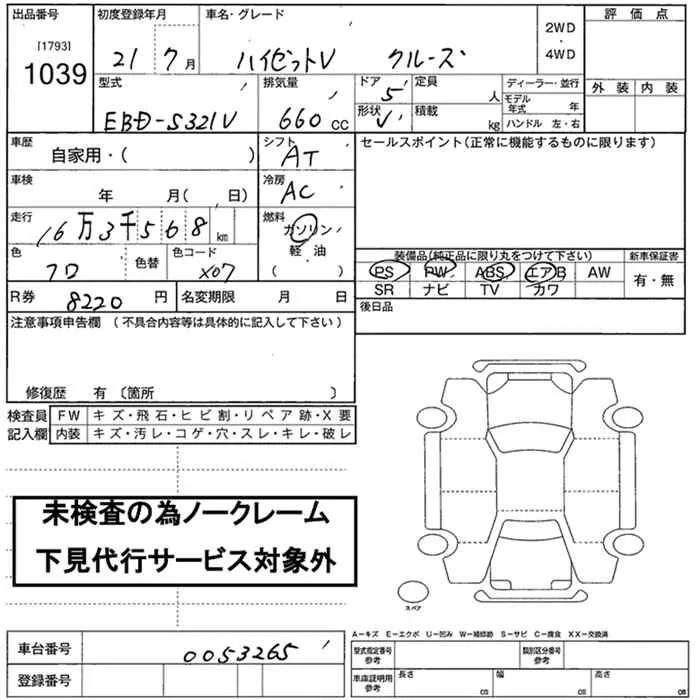 出品番号
[1793]
1039
初度登録年月
21 7月
車名・グレード
ハイゼットV クルーズ
2WD
・
4WD
評価点
外装 内装
型式
EBD-S321V
排気量
660 cc
ドア 5
形状 V
定員
人
積載
kg
ディーラー・並行
モデル年式 年
ハンドル 左・右
車歴
自家用・( )
シフト
AT
セールスポイント(正常に機能するものに限ります)
車検
年 月( 日)
冷房
AC
走行
16万3千568 km
燃料
ガソリン
軽・油
( )
色
クロ
色替
色コード
X07
装備品(純正品に限り丸をつけて下さい)
新車保証書
PS PW ABS エアB AW
有・無
SR ナビ TV カワ
R券 8220 円
名変期限 月 日
後日品
注意事項申告欄 (不具合内容等は具体的に記入して下さい)
修復歴 有 〔箇所 〕
検査員
記入欄
FW キズ・飛石・ヒビ割・リペア跡・X要
内装 キズ・汚レ・コゲ・穴・スレ・キレ・破レ
未検査の為ノークレーム
下見代行サービス対象外
スペア
A-キズ E-エクボ U-凹み W-補修跡 S-サビ C-腐食 XX-交換済
車台番号
0053265
登録番号
型式指定番号
参考
類別区分番号
参考
車庫証明用
参考
長さ cm
幅 cm
高さ cm